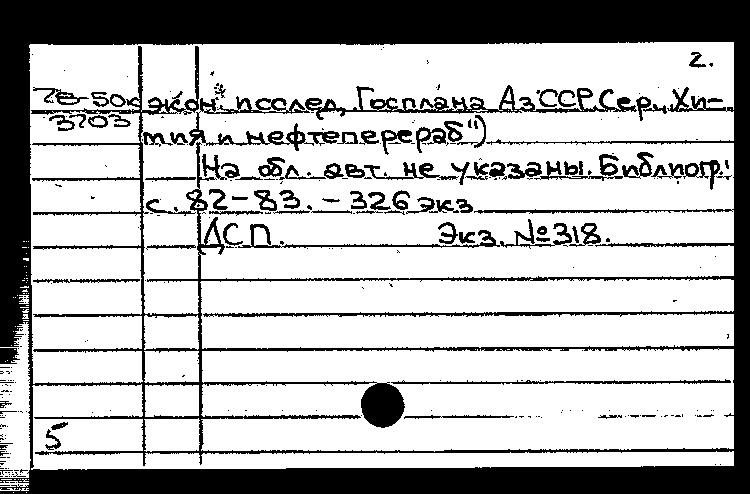 2.
78-50к экон. исслед, Госплана АзССР. Сер., Хи-
3203 мия и нефтеперераб")
На обл. авт. не указаны. Библиогр.:
с. 82-83. - 326 экз
ДСП. Экз. №318.
5